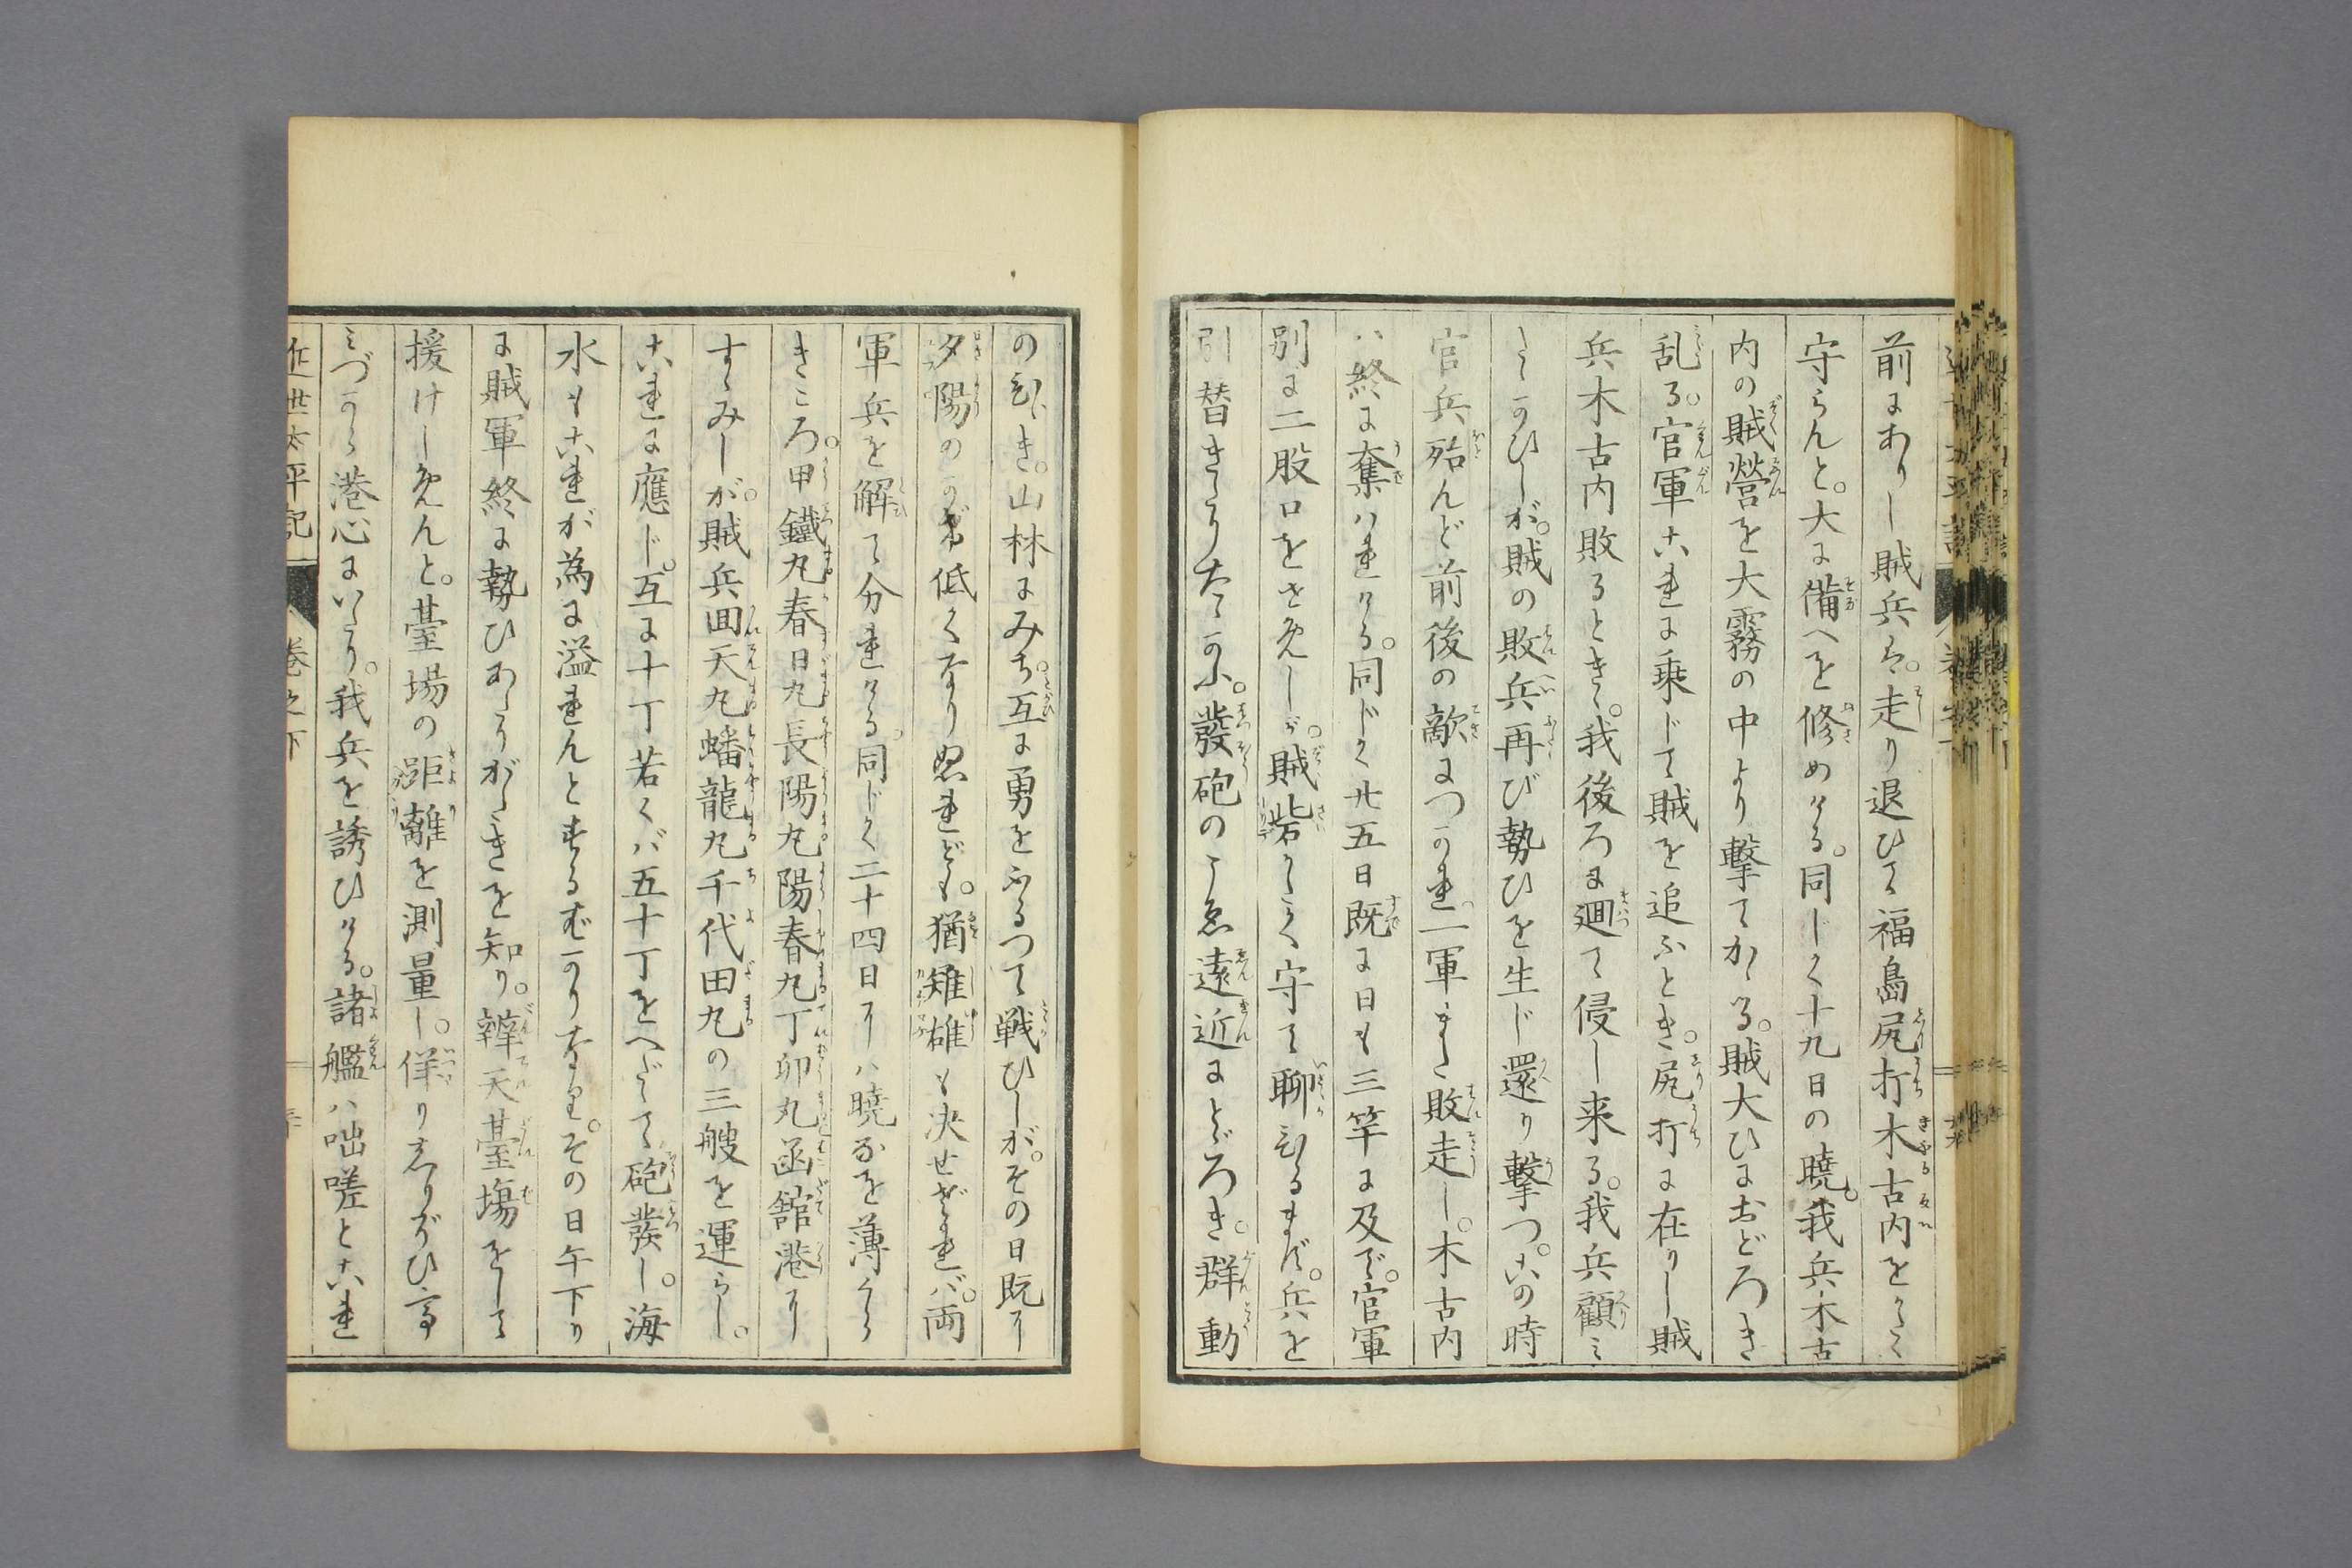 前にありし賊兵は。走り退ひて福島尻打木古内をかたく
守らんと。大に備へを修めける。同じく十九日の曉。我兵木古
内の賊營を大霧の中より撃てかゝる。賊大ひにおどろき
乱る。官軍これに乗じて賊を追ふとき。尻打に在りし賊
兵木古内敗るときゝ。我後ろに廻て侵し来る。我兵顧み
たゝかひしが。賊の敗兵再び勢ひを生じ還り撃つ。この時
官兵殆んど前後の敵につかれ。一軍まさに敗走し。木古内
ハ終に奪ハれける。同じく廿五日既に日も三竿に及で。官軍
別に二股口をせめしが。賊砦かたく守て聊ひるまず。兵を
引替きりたゝかふ。發砲のこゑ遠近にとゞろき。群動
のひゞき。山林にみち。互に勇をふるつて戦ひしが。その日既に
夕陽のかげ低くなりぬれども。猶雌雄も决せざれバ。両
軍兵を解て分れける。同じく二十四日にハ曉なを薄くら
きころ。甲鐵丸春日丸長陽丸陽春丸丁卯丸函舘港に
すゝみしが。賊兵回天丸蟠龍丸千代田丸の三艘を運らし。
これに應じ。互に十丁若くバ五十丁をへだてゝ砲發し。海
水もこれが為に溢れんとするばかりなり。その日午下り
に賊軍終に勢ひあたりがたきを知り。辨天臺塲をして
援けしめんと。臺場の距離を測量し。佯りしりがひ
みづから港心にいたり。我兵を誘ひける。諸艦ハ咄嗟とこれ
近世太平記
卷之下